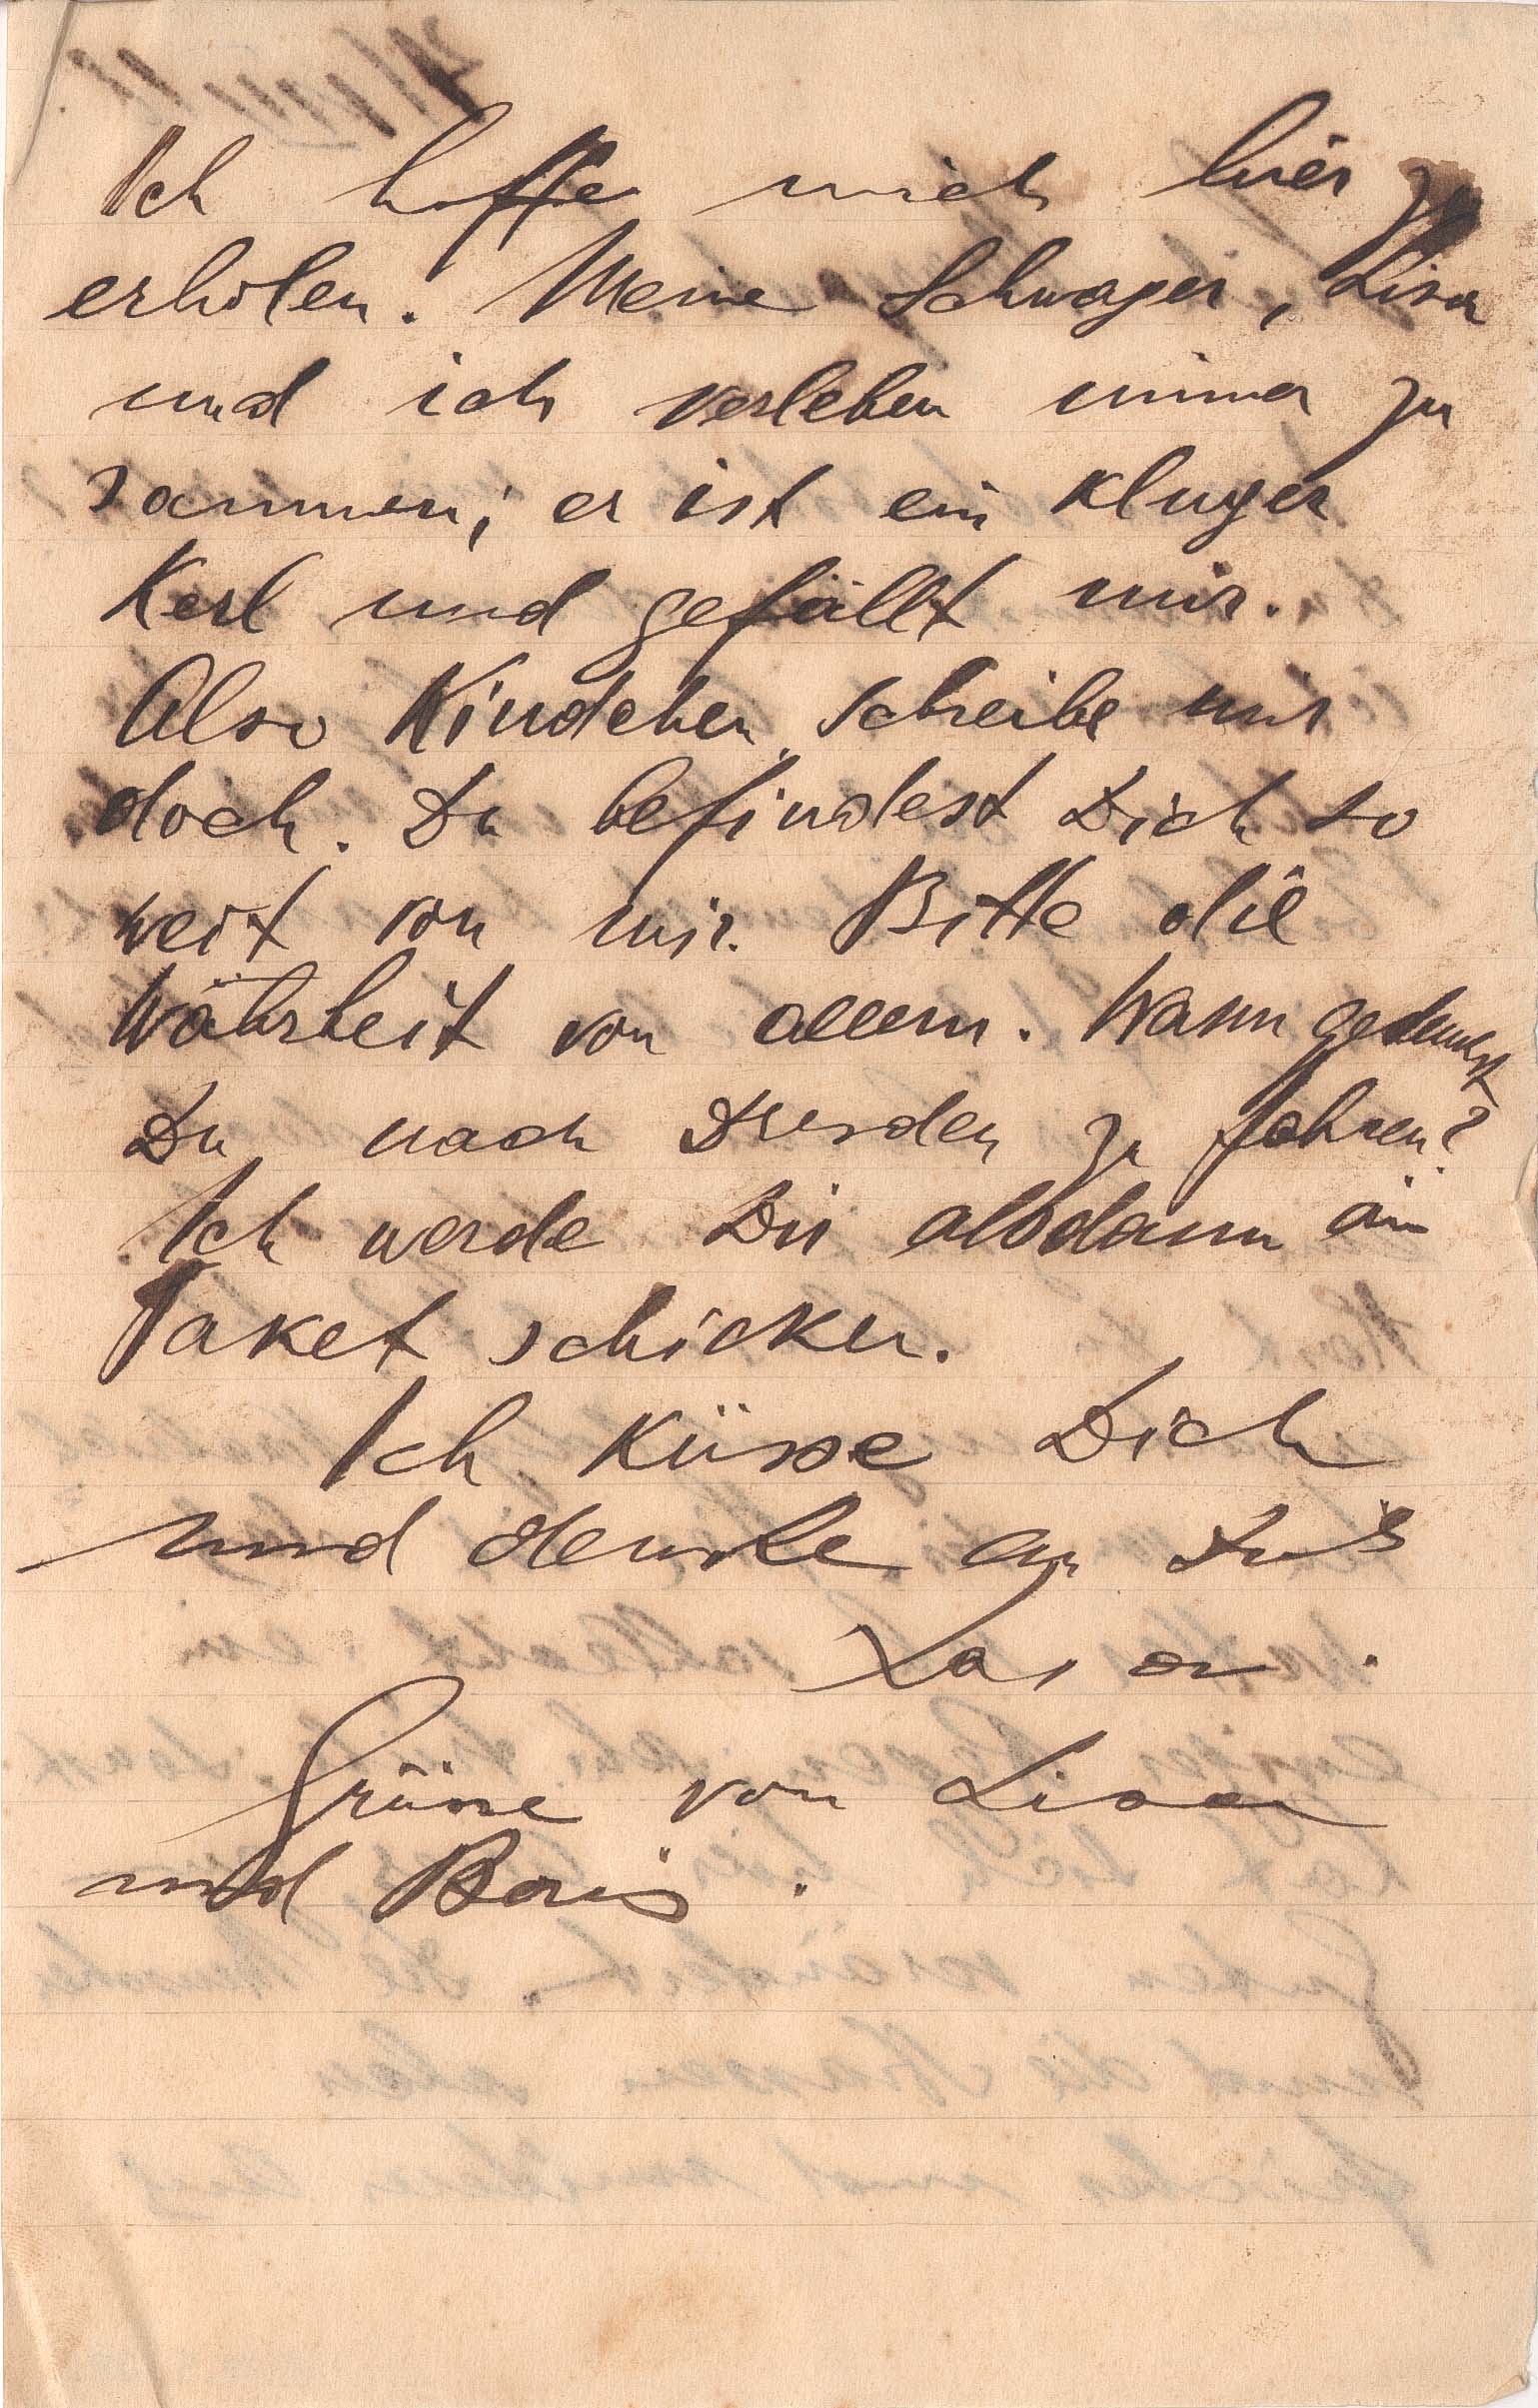 Ich hoffe mich hier zu
erholen. Meine Schwager, Lisa
und ich verleben immer zu
sammen; er ist ein kluger
Kerl und gefällt mir.
Also Kindchen, schreibe mir
doch. Du befindest Dich so
weit von mir. Bitte die
Wahrheit von allem. Wann gedenkst
Du nach Dresden zu fahren?
Ich werde Dir alsdann ein
Paket schicken.
Ich küsse Dich
und denke an
Grüsse von Lisa
und Boris.